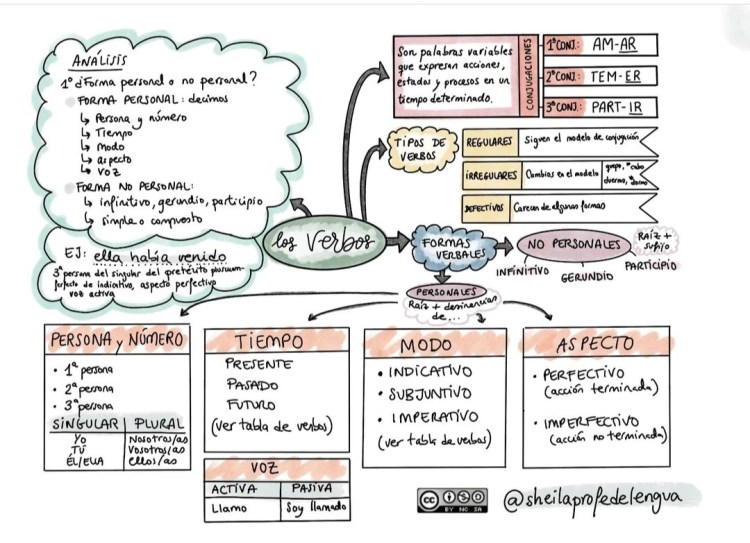 ANÁLISIS
1º ¿Forma personal o no personal?
FORMA PERSONAL: decimos
↳ Persona y número
↳ Tiempo
↳ Modo
↳ aspecto
↳ voz
FORMA NO PERSONAL:
↳ infinitivo, gerundio, participio
↳ simple o compuesto
EJ: ella había venido
3ª persona del singular del pretérito pluscuam-
perfecto de indicativo, aspecto perfectivo
voz activa
Son palabras variables
que expresan acciones,
estados y procesos en un
tiempo determinado.
CONJUGACIONES
1ª CONJ.: AM-AR
2ª CONJ.: TEM-ER
3ª CONJ.: PART-IR
TIPOS DE
VERBOS
REGULARES Siguen el modelo de conjugación
IRREGULARES Cambios en el modelo
DEFECTIVOS Carecen de algunas formas
los Verbos
FORMAS
VERBALES
NO PERSONALES
RAÍZ +
Sufijo
INFINITIVO
GERUNDIO
PARTICIPIO
PERSONALES
Raíz + desinencias
de...
PERSONA y NÚMERO
• 1ª persona
• 2ª persona
• 3ª persona
SINGULAR PLURAL
Yo Nosotros/as
TÚ Vosotros/as
ÉL/ELLA ellos/as
TIEMPO
PRESENTE
PASADO
FUTURO
(Ver tabla de verbos)
VOZ
ACTIVA PASIVA
Llamo Soy llamado
MODO
• INDICATIVO
• SUBJUNTIVO
• IMPERATIVO
(ver tabla de verbos)
ASPECTO
• PERFECTIVO
(acción terminada)
• IMPERFECTIVO
(acción no terminada)
cc BY NC SA
@sheilaprofedelengua